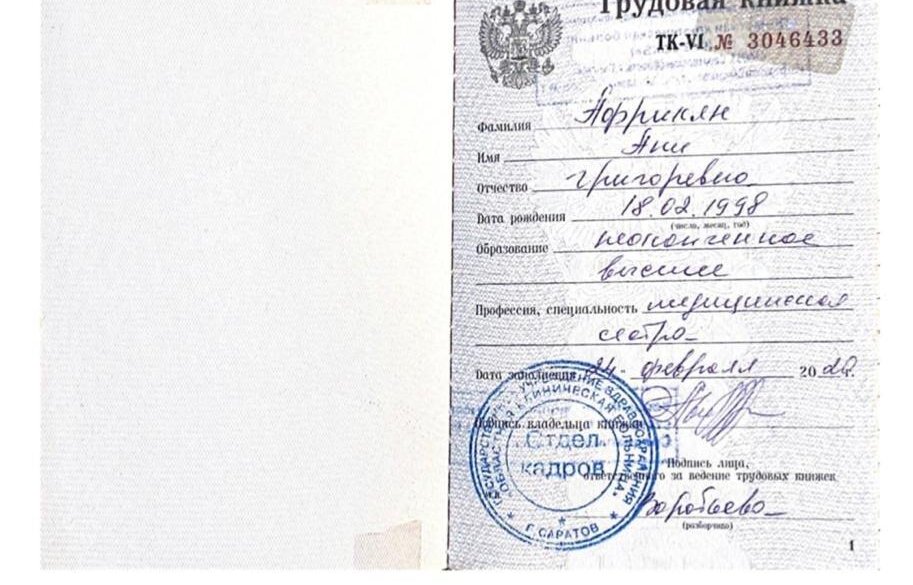 Трудовая книжка
ТК-VI № 3046433
Фамилия Африкян
Имя Ани
Отчество Григоревна
Дата рождения 18.02.1998
(число, месяц, год)
Образование неоконченное
высшее
Профессия, специальность медицинская
сестра
Дата заполнения 24 февраля 2020 г.
Подпись владельца книжки
Подпись лица,
ответственного за ведение трудовых книжек
Воробьева
(разборчиво)
ГОСУДАРСТВЕННОЕ УЧРЕЖДЕНИЕ ЗДРАВООХРАНЕНИЯ
"ОБЛАСТНАЯ КЛИНИЧЕСКАЯ БОЛЬНИЦА"
Отдел
кадров
Г. САРАТОВ
1